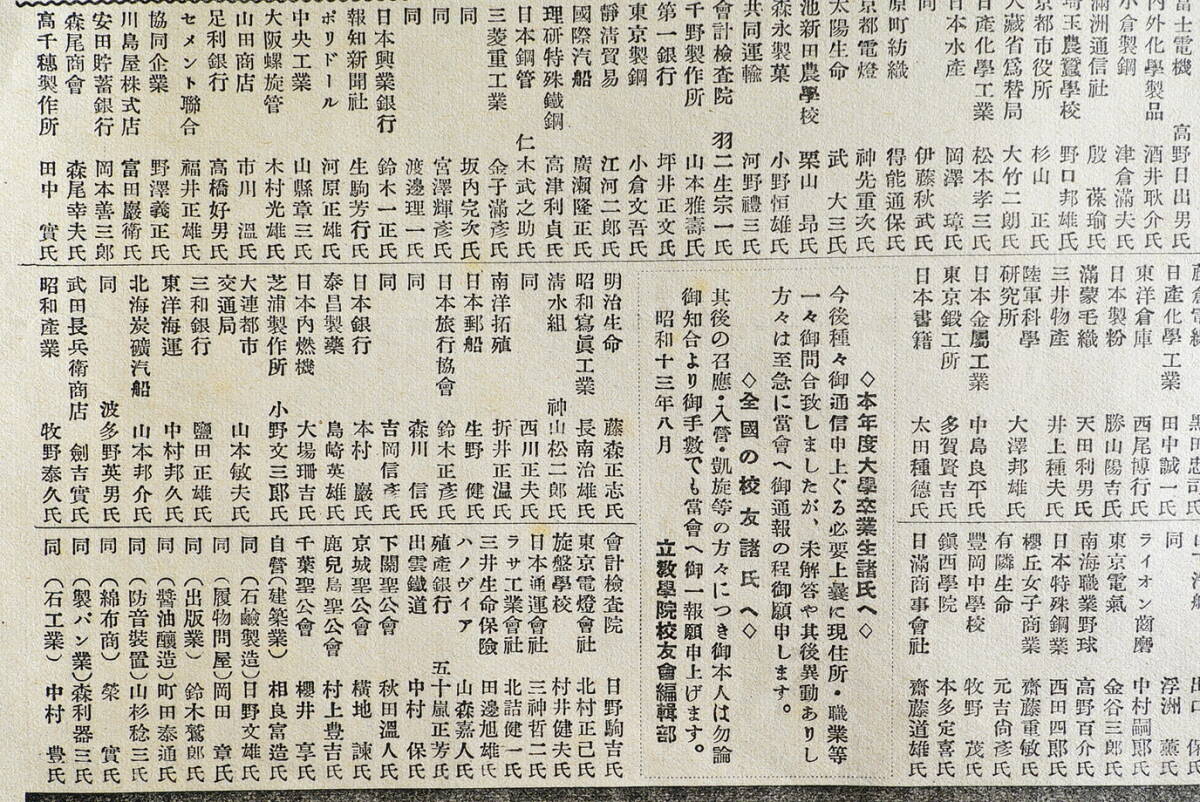 富士電機 高野日出男氏
内外化學製品 酒井耿介氏
小倉製鋼 津倉滿夫氏
滿洲通信社 殷葆瑜氏
埼玉農蠶學校 野口邦雄氏
京都市役所 杉山正氏
大藏省爲替局 大竹二朗氏
日產化學工業 松本孝三氏
日本水產 岡澤璋氏
同 伊藤秋武氏
原町紡織 得能通保氏
京都電燈 神先重次氏
太陽生命 武大三氏
池新田農學校 栗山昻氏
森永製菓 小野恒雄氏
共同運輸 河野禮三氏
會計檢査院 羽二生宗一氏
千野製作所 山本雅壽氏
第一銀行 坪井正文氏
東京製鋼 小倉文吾氏
靜淸貿易 江河二郎氏
國際汽船 廣瀨隆正氏
理研特殊鐵鋼 高津利貞氏
日本鋼管 仁木武之助氏
三菱重工業 金子滿彥氏
同 坂内完次氏
同 宮澤輝彥氏
同 渡邊理一氏
日本興業銀行 鈴木一正氏
報知新聞社 生駒芳行氏
ポリドール 河原正雄氏
中央工業 山縣章三氏
大阪螺旋管 木村光雄氏
山田商店 市川溫氏
足利銀行 高橋好男氏
セメント聯合 福井正雄氏
協同企業 野澤義正氏
川島屋株式店 富田巖衛氏
安田貯蓄銀行 岡本善三郎氏
森尾商會 森尾幸夫氏
高千穗製作所 田中實氏
日產化學工業 田中誠一氏
東洋倉庫 西尾博行氏
日本製粉 勝山陽吉氏
滿蒙毛織 天田利男氏
三井物產 井上種夫氏
陸軍科學研究所 大澤邦雄氏
日本金屬工業 中島良平氏
東京鍛工所 多賀賢吉氏
日本書籍 太田種德氏
◇本年度大學卒業生諸氏へ◇
今後種々御通信申上ぐる必要上曩に現住所・職業等
一々御問合致しましたが、未解答や其後異動ありし
方々は至急に當會へ御通報の程御願申します。
◇全國の校友諸氏へ◇
其後の召應・入營・凱旋等の方々につき御本人は勿論
御知合より御手數でも當會へ御一報願申上げます。
昭和十三年八月 立敎學院校友會編輯部
明治生命 藤森正志氏
昭和寫眞工業 長南治雄氏
淸水組 神山松二郎氏
同 西川正夫氏
南洋拓殖 折井正溫氏
日本郵船 生野健氏
日本旅行協會 鈴木正彥氏
同 森川信氏
同 吉岡信彥氏
日本銀行 本村巖氏
泰昌製藥 島崎英雄氏
日本内燃機 大場珊吉氏
芝浦製作所 小野文三郎氏
大連都市交通局 山本敏夫氏
三和銀行 鹽田正雄氏
東洋海運 中村邦久氏
北海炭礦汽船 山本邦介氏
同 波多野英男氏
武田長兵衛商店 劍吉實氏
昭和產業 牧野泰久氏
同 浮洲薰氏
ライオン齒磨 中村嗣郎氏
東京電氣 金谷三郎氏
南海職業野球 高野百介氏
日本特殊鋼業 西田四郎氏
櫻丘女子商業 齋藤重敏氏
有隣生命 元吉尙彥氏
豐岡中學校 牧野茂氏
鎭西學院 本多定喜氏
日滿商事會社 齋藤道雄氏
會計檢查院 日野駒吉氏
東京電燈會社 北村正己氏
旋盤學校 村井健夫氏
日本通運會社 三神哲二氏
ラサ工業會社 北詰健一氏
三井生命保險 田邊旭雄氏
ハノヴイア 山森嘉人氏
殖產銀行 五十嵐正芳氏
出雲鐵道 中村保氏
下關聖公會 秋田溫人氏
京城聖公會 橫地諫氏
鹿兒島聖公會 村上豊吉氏
千葉聖公會 櫻井享氏
自營（建築業） 相良富造氏
同（石鹼製造） 日野文雄氏
同（履物問屋） 岡田章氏
同（出版業） 鈴木鷲郎氏
同（醬油釀造） 町田泰通氏
同（防音裝置） 山杉稔三氏
同（綿布商） 榮實氏
同（製パン業） 森利器三氏
同（石工業） 中村豊氏